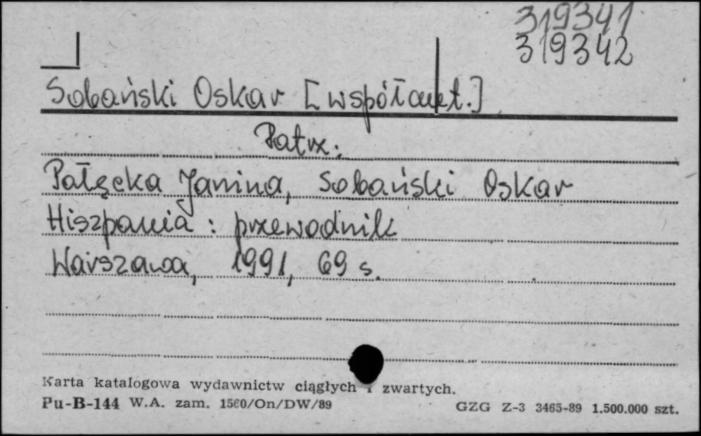 319341
319342
Sobański Oskar [współaut.]
Patrz:
Pałęcka Janina, Sobański Oskar
Hiszpania : przewodnik
Warszawa, 1991, 69 s.
Karta katalogowa wydawnictw ciągłych i zwartych.
Pu-B-144 W.A. zam. 1560/On/DW/89 GZG Z-3 3465-89 1.500.000 szt.